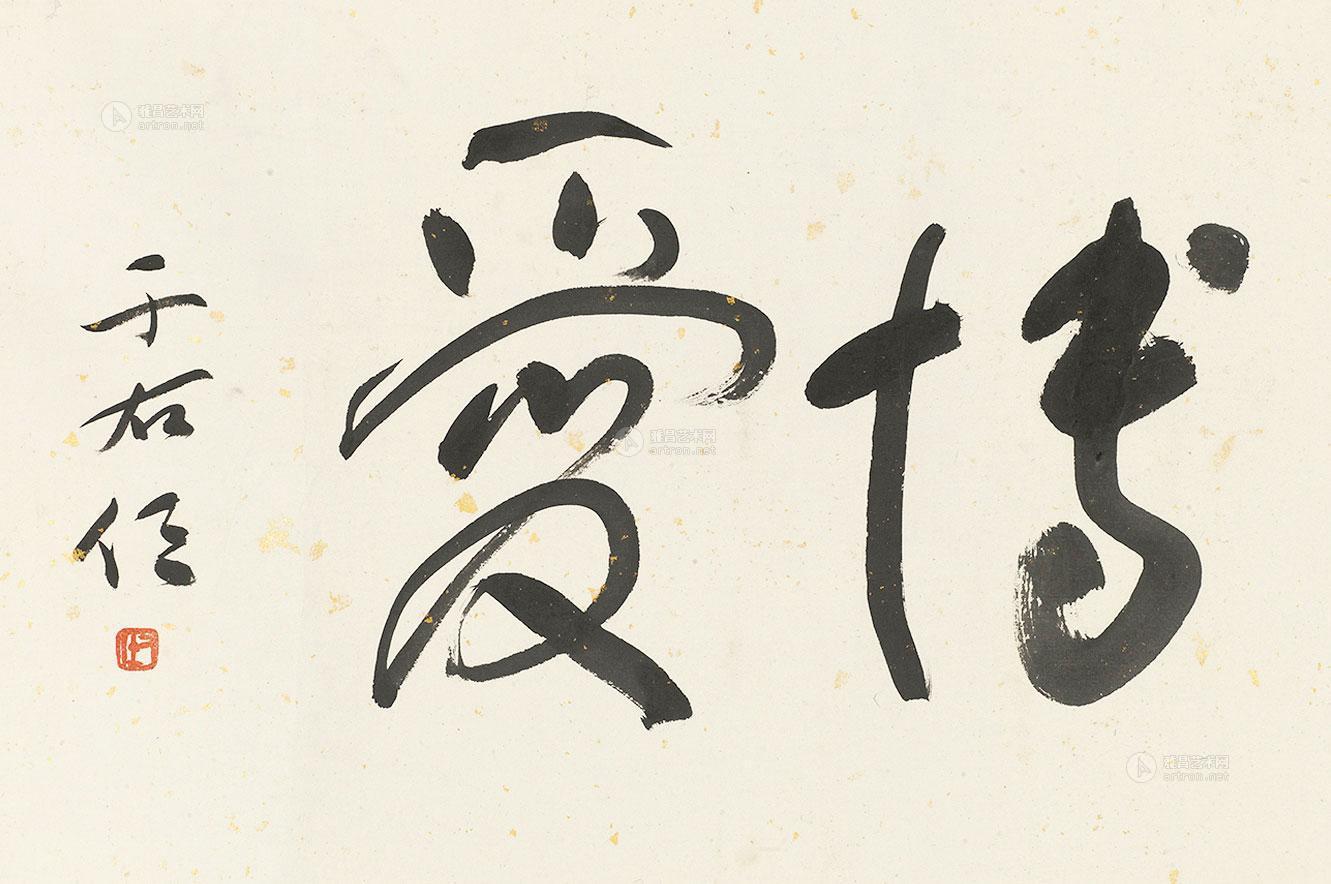 博愛
于右任
雅昌艺术网
artron.net
雅昌艺术网
artron.net
雅昌艺术网
artron.net